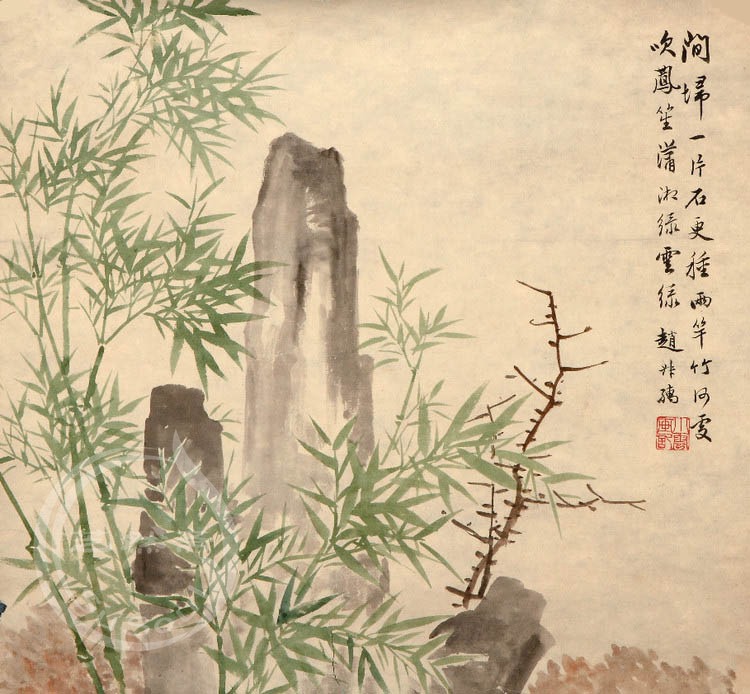 閒埽一片石更種兩竿竹何處
吹鳳笙瀟湘綠雲綠 趙叔孺